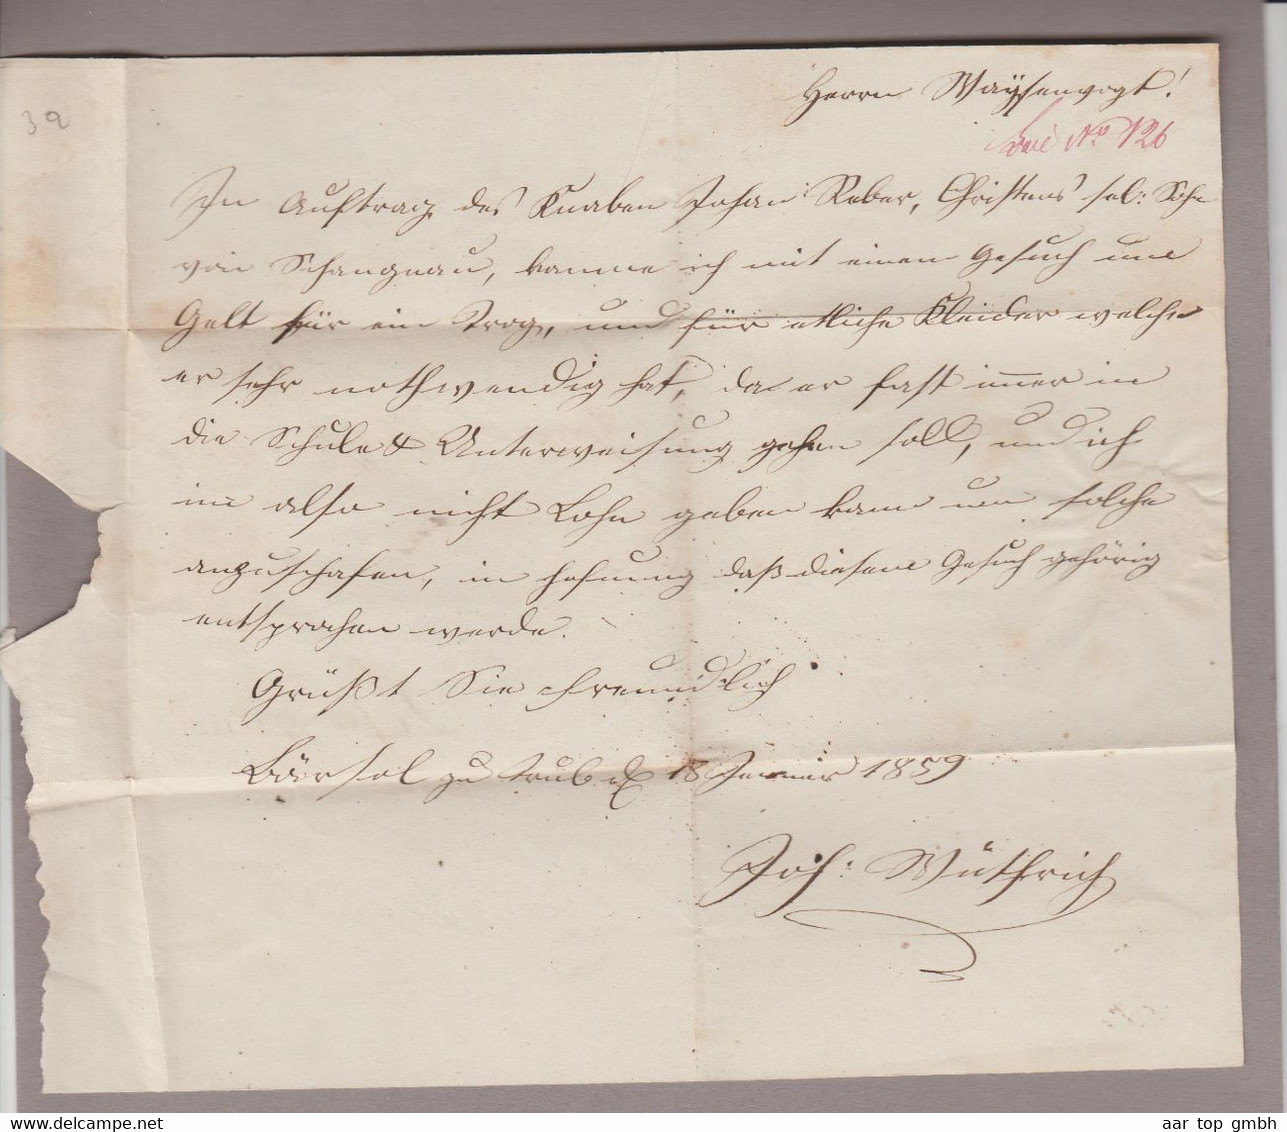 39
Herrn Waÿsenvogt!
No 126
In Auftrag des Knaben Johan Reber, Christens sel: Sohn
von Schangnau, komme ich mit einem Gesuch um
Gelt für ein Trog, und für etliche Kleider welche
er sehr nothwendig hat, da er fast immer in
die Schule & Unterweisung gehen soll, und ich
im also nicht Lohn geben kann um solche
anzuschafen, in hofnung daß diesem Gesuch gehörig
entsprochen werde.
Grüßt Sie freundlich
zu Trub d 18 Jenner 1859
Joh: Wüthrich
aar top gmbh